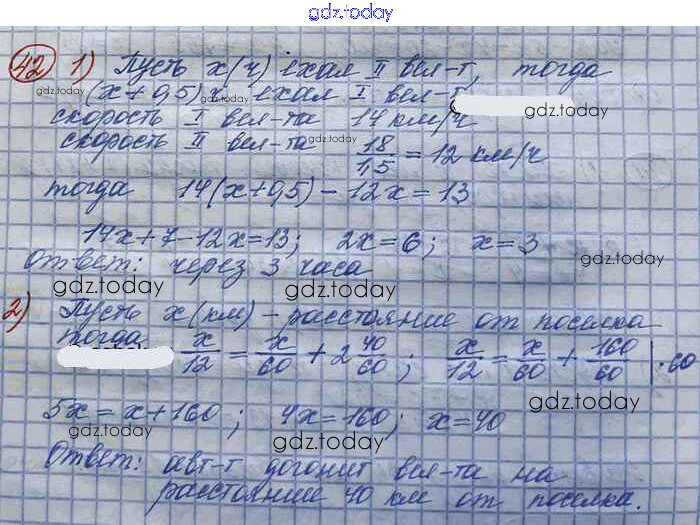 gdz.today
42 1) Пусть x(ч) ехал II вел-т, тогда
gdz.today (x+0,5)ч ехал I вел-т gdz.today
скорость I вел-та 14 км/ч
скорость II вел-та gdz.today 18/1,5 = 12 км/ч
тогда 14(x+0,5) - 12x = 13
14x+7-12x=13; 2x=6; x=3
Ответ: через 3 часа gdz.today
gdz.today gdz.today
2) Пусть x(км) - расстояние от поселка
тогда x/12 = x/60 + 2 40/60; x/12 = x/60 + 160/60 | ·60
gdz.today
5x = x+160; 4x=160; x=40
gdz.today gdz.today
Ответ: авт-т догонит вел-та на
расстояние 40 км от поселка.